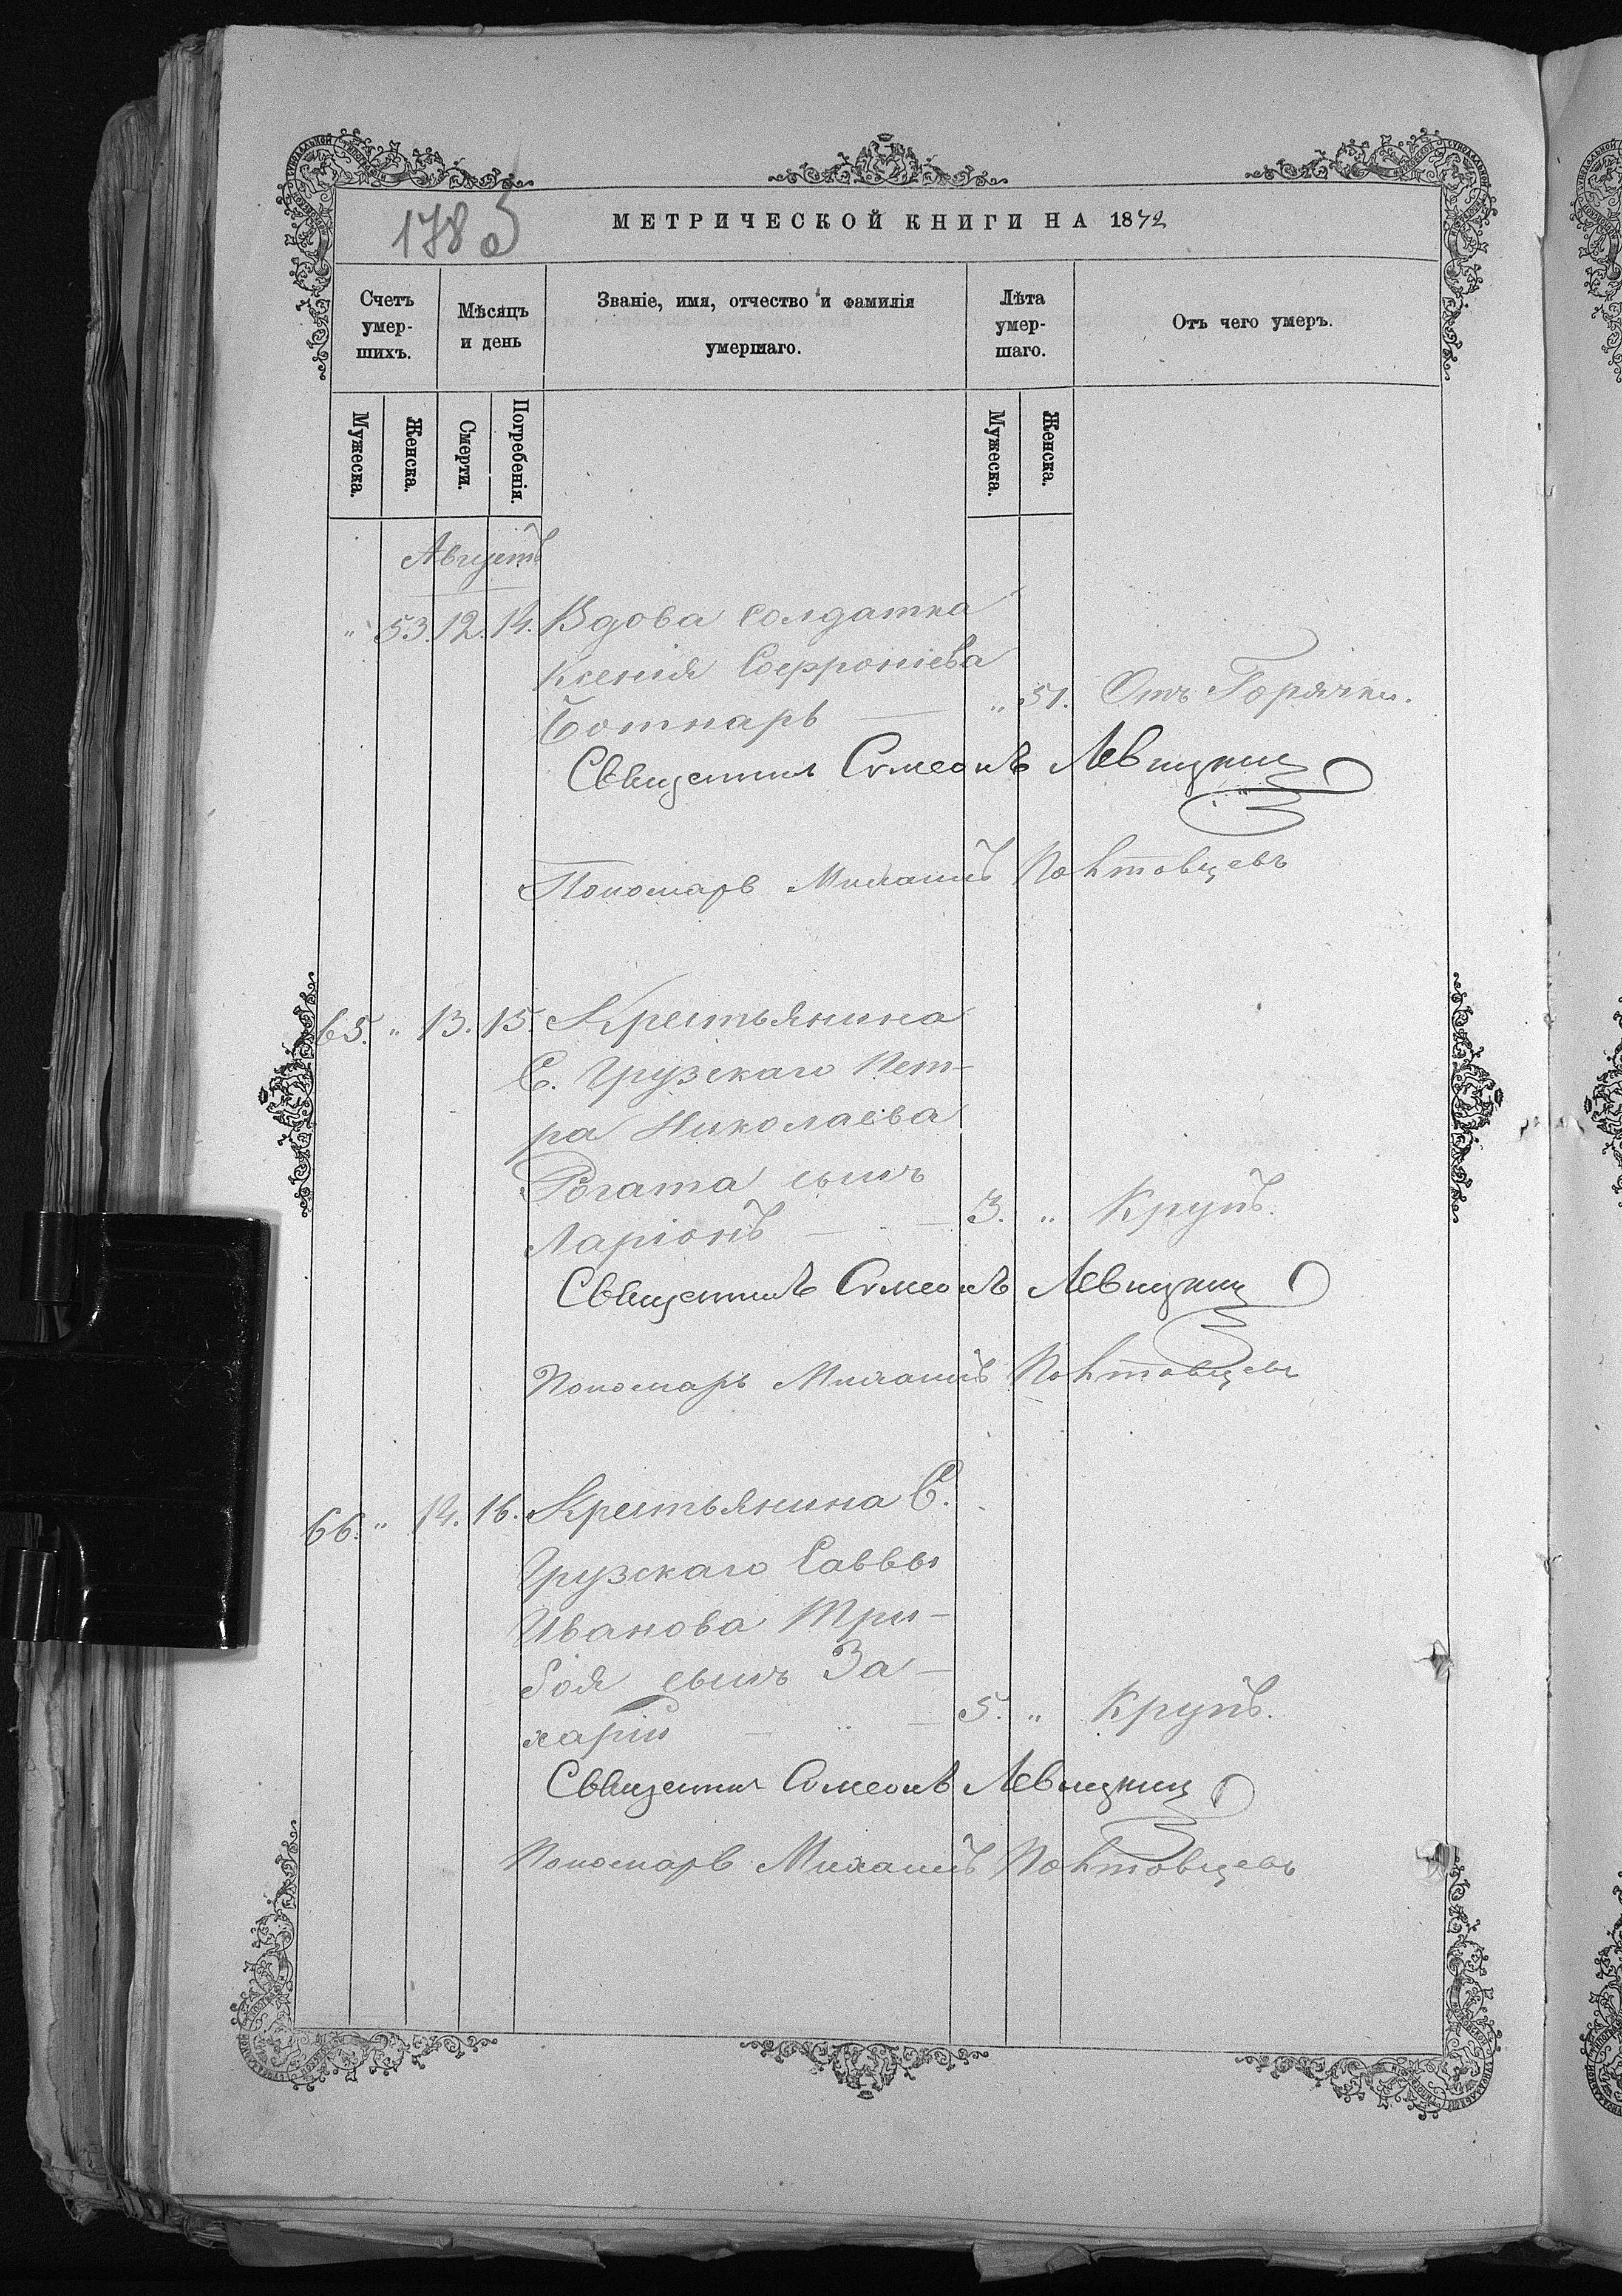 178 об
МЕТРИЧЕСКОЙ КНИГИ НА 1872
Счетъ умер- шихъ.
Мѣсяцъ и день
Званіе, имя, отчество и фамилія умершаго.
Лѣта умер- шаго.
Отъ чего умеръ.
Мужеска. Женска. Смерти. Погребенія. Мужеска. Женска.
Августъ
" 53. 12. 14. Вдова солдатка
Ксенія Софроніева
Ботнарь — " 51. Отъ Горячки.
Священникъ Симеонъ Левицкій
Пономарь Михаилъ
65. " 13. 15. Крестьянина
С. Грузскаго Пет-
ра Николаева
Рогата сынъ
Ларіонъ — 3. " Крупъ.
Священникъ Симеонъ Левицкій
Пономарь Михаилъ
66. " 14. 16. Крестьянина С.
Грузскаго Саввы
Иванова Три-
боя сынъ За-
харій — " — 5. " Крупъ.
Священникъ Симеонъ Левицкій
Пономарь Михаилъ